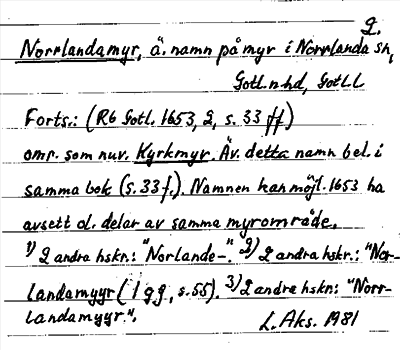 2.
Norrlandamyr, ä. namn på myr i Norrlanda sn,
Gotl. n. hd, Gotl. l
Forts.: (Rb Gotl. 1653, 2, s. 33 ff)
omr. som nuv. Kyrkmyr. Äv. detta namn bel. i
samma bok (s. 33 f.). Namnen kan möjl. 1653 ha
avsett ol. delar av samma myrområde.
1) 2 andra hskr.: "Norlande-". 2) 2 andra hskr.: "Nor-
landamyyr (1 gg, s. 55). 3) 2 andre hskr: "Norr-
landamyyr".
L. Aks. 1981